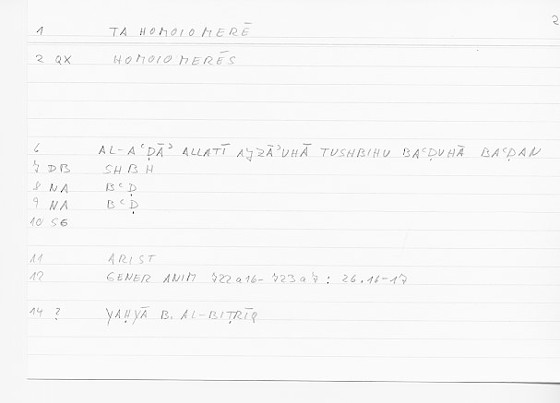 2
1 TA HOMOIOMERĒ
2 QX HOMOIOMERĒS
6 AL-AʿḌĀʾ ALLATĪ AJZĀʾUHĀ TUSHBIHU BAʿḌUHĀ BAʿḌAN
7 DB SHBH
8 NA BʿḌ
9 NA BʿḌ
10 SG
11 ARIST
12 GENER ANIM 722a16-723a7 : 26.16-17
14 ? YAḤYĀ B. AL-BIṬRĪQ